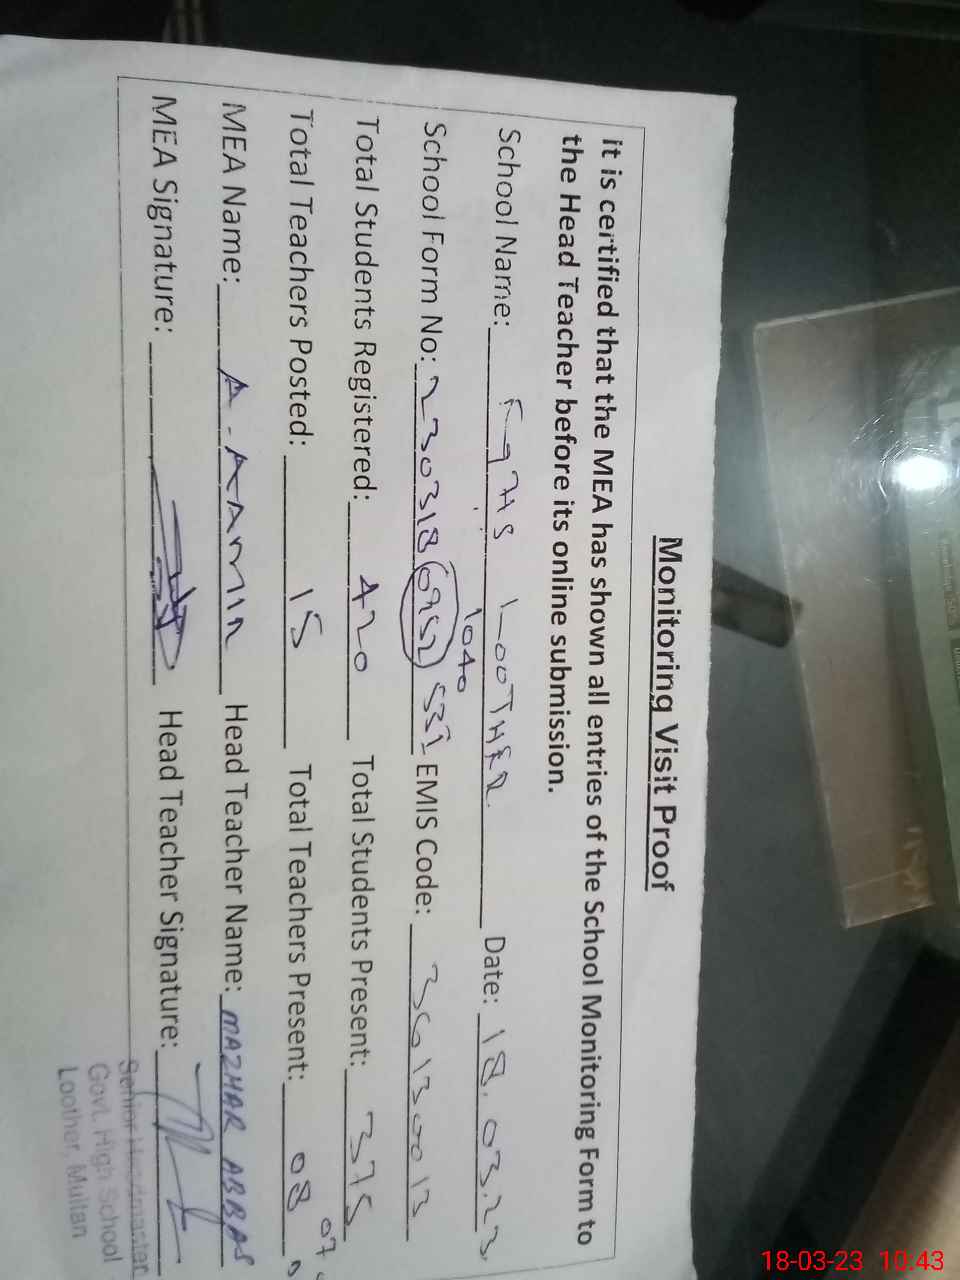 Monitoring Visit Proof
it is certified that the MEA has shown all entries of the School Monitoring Form to
the Head Teacher before its online submission.
School Name: LOOTHER. Date: 18.03.23
1040
School Form No: 2303180952 EMIS Code: 36130013
Total Students Registered: 420 Total Students Present: 375
Total Teachers Posted: 15 Total Teachers Present: 08
07
MEA Name: A. AAMIR Head Teacher Name: MAZHAR ABBAS
MEA Signature: Head Teacher Signature:
Senior Headmaster
Govt. High School
Loother, Multan
18-03-23 10:43